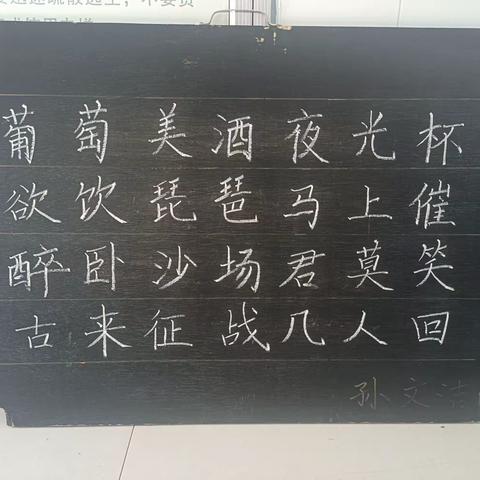 葡萄美酒夜光杯
欲饮琵琶马上催
醉卧沙场君莫笑
古来征战几人回
孙文洁